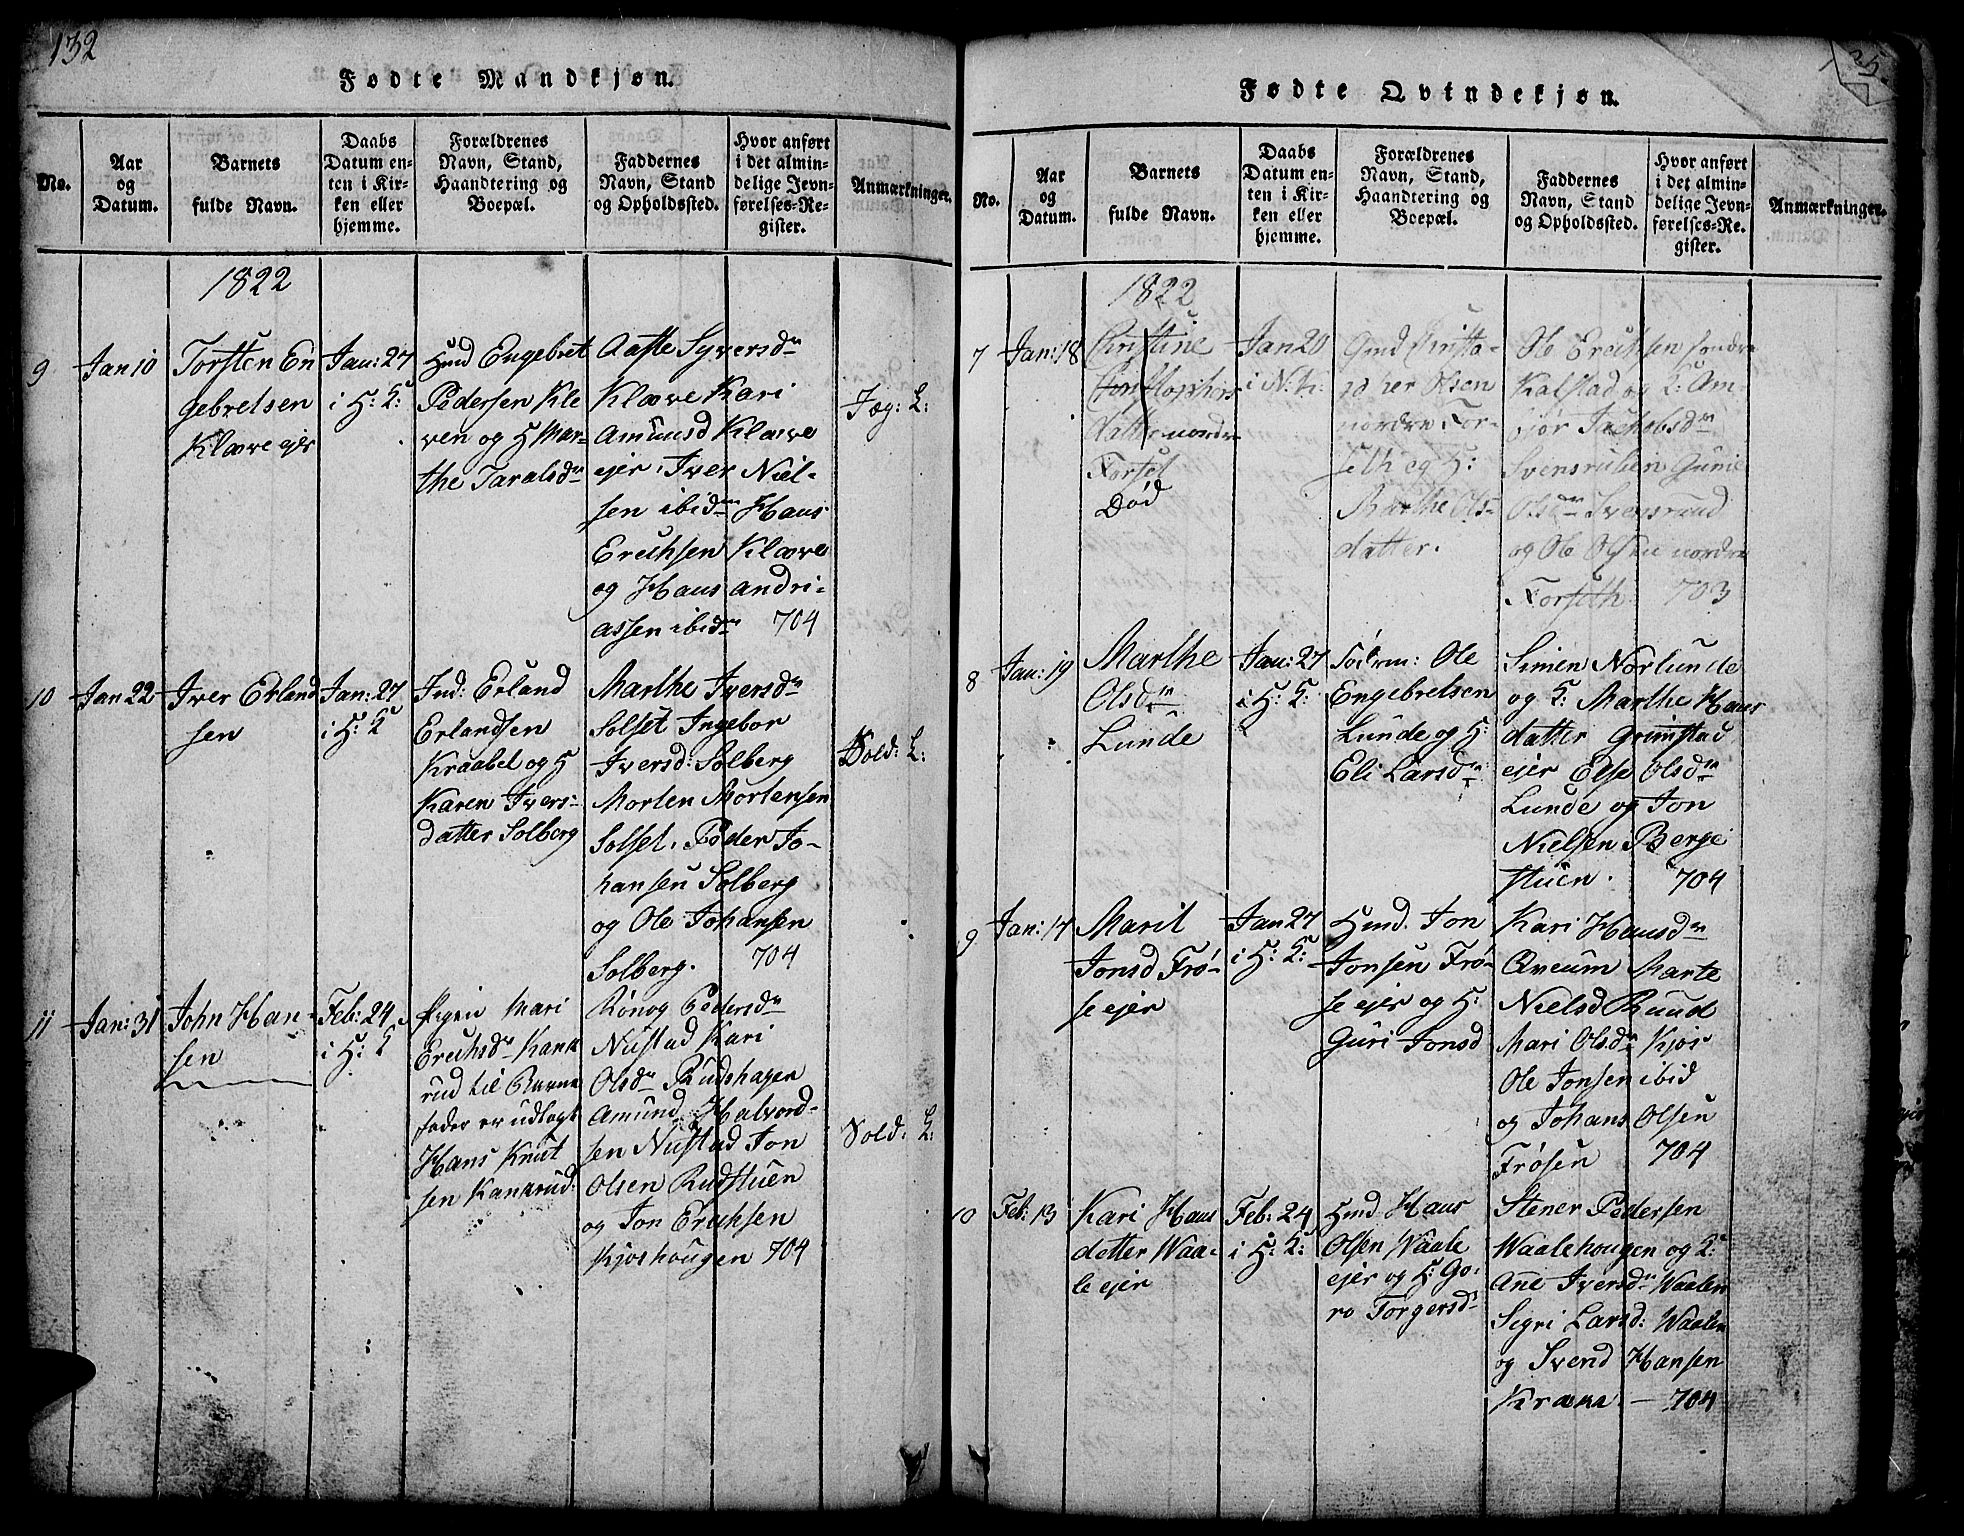 132
Fødte Mandkjøn.
No.
Aar
og
Datum.
Barnets
fulde Navn.
Daabs
Datum en-
ten i Kir-
ken eller
hjemme.
Forældrenes
Navn, Stand,
Haandtering og
Boepæl.
Faddernes
Navn, Stand
og Opholdssted.
Hvor anført
i det almin-
delige Jevn-
førelses-Re-
gister.
Anmærkninger.
1822
9
Jan 10
Torsten En
gebretsen
Klæve ejer
Jan: 27
i H: K:
Huud Engebret
Pedersen Kle
ven og H Mar-
the Taralsdr
Aaste Syversdr
Klæve Kari
Amunsd Klæve
ejer, Iver Niel-
sen ibidm Hans
Erichsen Klæve
og Hans andri-
assen ibidm 704
Jæg: L:
10
Jan 22
Iver Erland
sen
Jan: 27
i H: K
Ind: Erland
Erlandsen
Kraabel og H
Karen Ivers-
datter Solberg
Marthe Iversdr
Solset Ingebor
Iversd: Solberg
Morten Mortensen
Solset. Peder Jo-
hansen Solberg
og Ole Johansen
Solberg. 704
Sold: L:
11
Jan: 31
John Han-
sen
Feb: 24
i H: K
Pigen Mari
Erichsdr Kank
rud til Barne
fader er udlagt
Hans Knut
sen Kankrud
Rønog Pedersdr
Nustad Kari
Olsdr Rudshagen
Amund Halvord-
sen Nustad Jon
Olsen Rudstuen
og Jon Erichsen
Kjoshougen 704
Sold: L:
Fødte Qvindekjøn.
No.
Aar
og
Datum.
Barnets
fulde Navn.
Daabs
Datum en-
ten i Kir-
ken eller
hjemme.
Forældrenes
Navn, Stand,
Haandtering og
Boepæl.
Faddernes
Navn, Stand
og Opholdssted.
Hvor anført
i det almin-
delige Jevn-
førelses-Re-
gister.
Anmærkninger.
1822
7
Jan: 18
Christine
Christophers
datter nordre
Forset
Død
Jan 20
i N: K:
Gmd Christo-
pher Olsen
nordre For-
seth og H:
Marthe Ols-
datter.
Ole Erichsen søndre
Kalstad og K: Am-
bjør Jachobsdr
Svensruhein Gunil
Olsdr Svensruud
og Ole Olsen nordre
Forseth 703
8
Jan: 19
Marthe
Olsdr
Lunde
Jan: 27
i H: K:
Føderm: Ole
Engebretsen
Lunde og H:
Eli Larsdr
Simen Norlunde
og K: Marthe Hans
datter Grimstad
ejer Else Olsdr
Lunde og Jon
Nielsen Berge
stuen. 704
9
Jan: 17
Marit
Jonsd Frø-
se ejer
Jan 27
i H: K:
Hmd. Jon
Jonsen Frø-
se ejer og H:
Guri Jonsd
Kari Hansdr
Qveum Marte
Nielsd Ruud
Mari Olsdr Kjos
Ole Jonsen ibid
og Johans Olsen
Frøsen 704
10
Feb: 13
Kari Hans
datter Waa-
le ejer
Feb: 24
i H: K:
Hmd. Hans
Olsen Waale
ejer og H: Go-
ro Torgersdr
Stener Pedersen
Waalehougen og K:
Ane Iversdr Waalen
Sigri Larsd: Waalen
og Svend Hansen
Kraka — 704